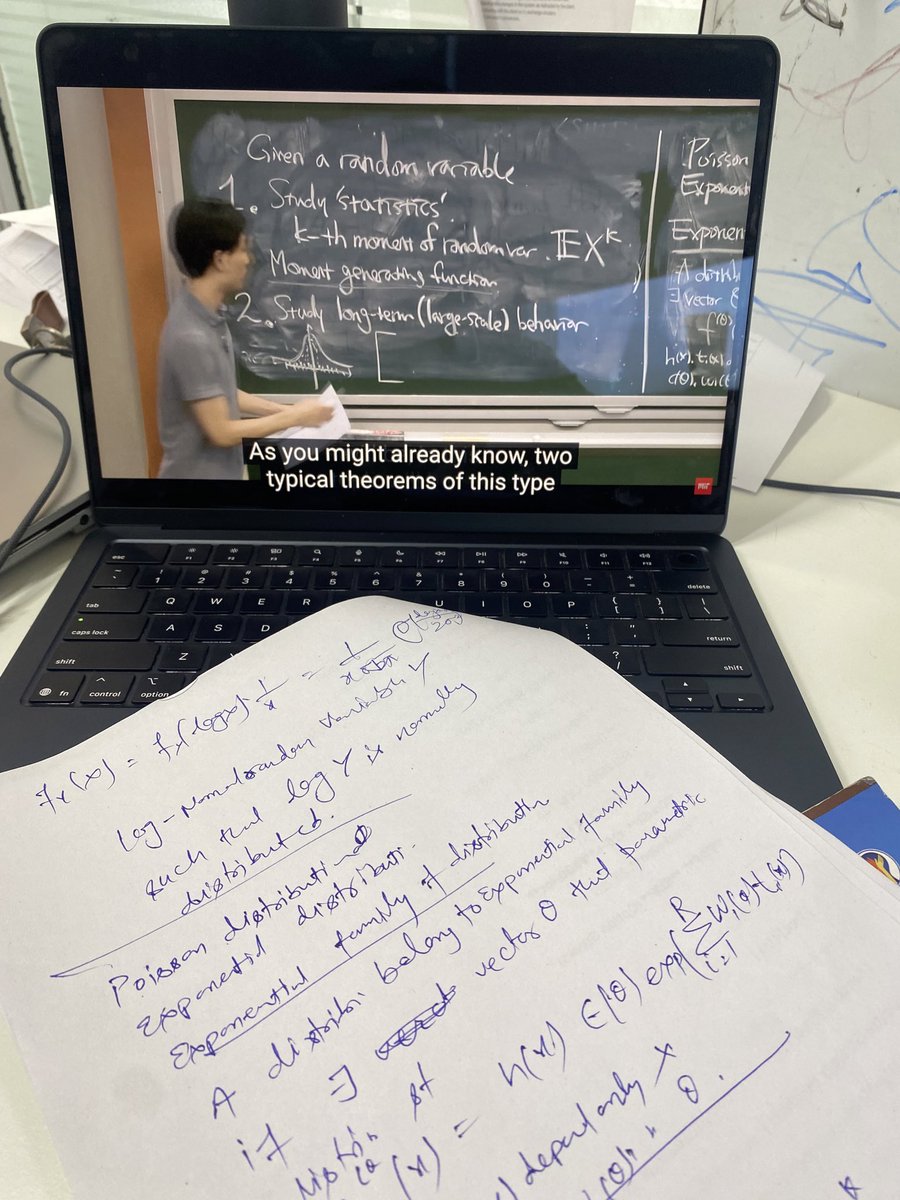 Given a random variable
1. Study 'statistics'.
k-th moment of random var. 𝔼X^k
Moment generating function
2. Study long-term (large-scale) behavior
Poisson
Exponent
Exponen
A distrib
∃ vector θ
f(θ)
h(x), t,(x),
As you might already know, two
typical theorems of this type
esc
F1 F2 F3 F4 F5 F6 F7 F8 F9 F10 F11 F12
~ ` ! 1 @ 2 # 3 $ 4 % 5 ^ 6 & 7 * 8 ( 9 ) 0 _ - + = delete
tab Q W E R U I O P { [ } ] | \
caps lock A S D : ; " ' return
shift Z ? / shift
fn control option
f_Y(x) = f_X(log x) · 1/x =
Log-Normal random variable Y
such that log Y is normally
distributed.
Poisson distribution
Exponential distributi.
Exponential family of distribution
A distribi. belong to Exponential family
if ∃ vector θ that parametric
st
(x) = h(x) exp(∑ i=1
depend only x
θ.